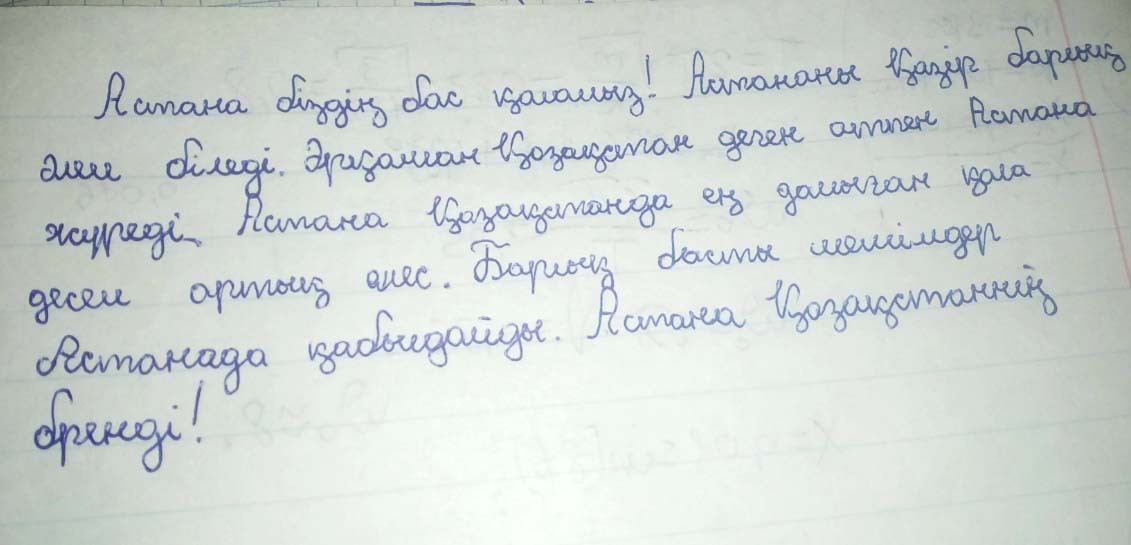 Астана біздің бас қаламыз! Астананы қазір барлық
әлем біледі. Әрқашан Қазақстан деген атпен Астана
жүреді. Астана Қазақстанда ең дамыған қала
десем артық емес. Барлық басты шешімдер
Астанада қабылдайды. Астана Қазақстанның
бренді!